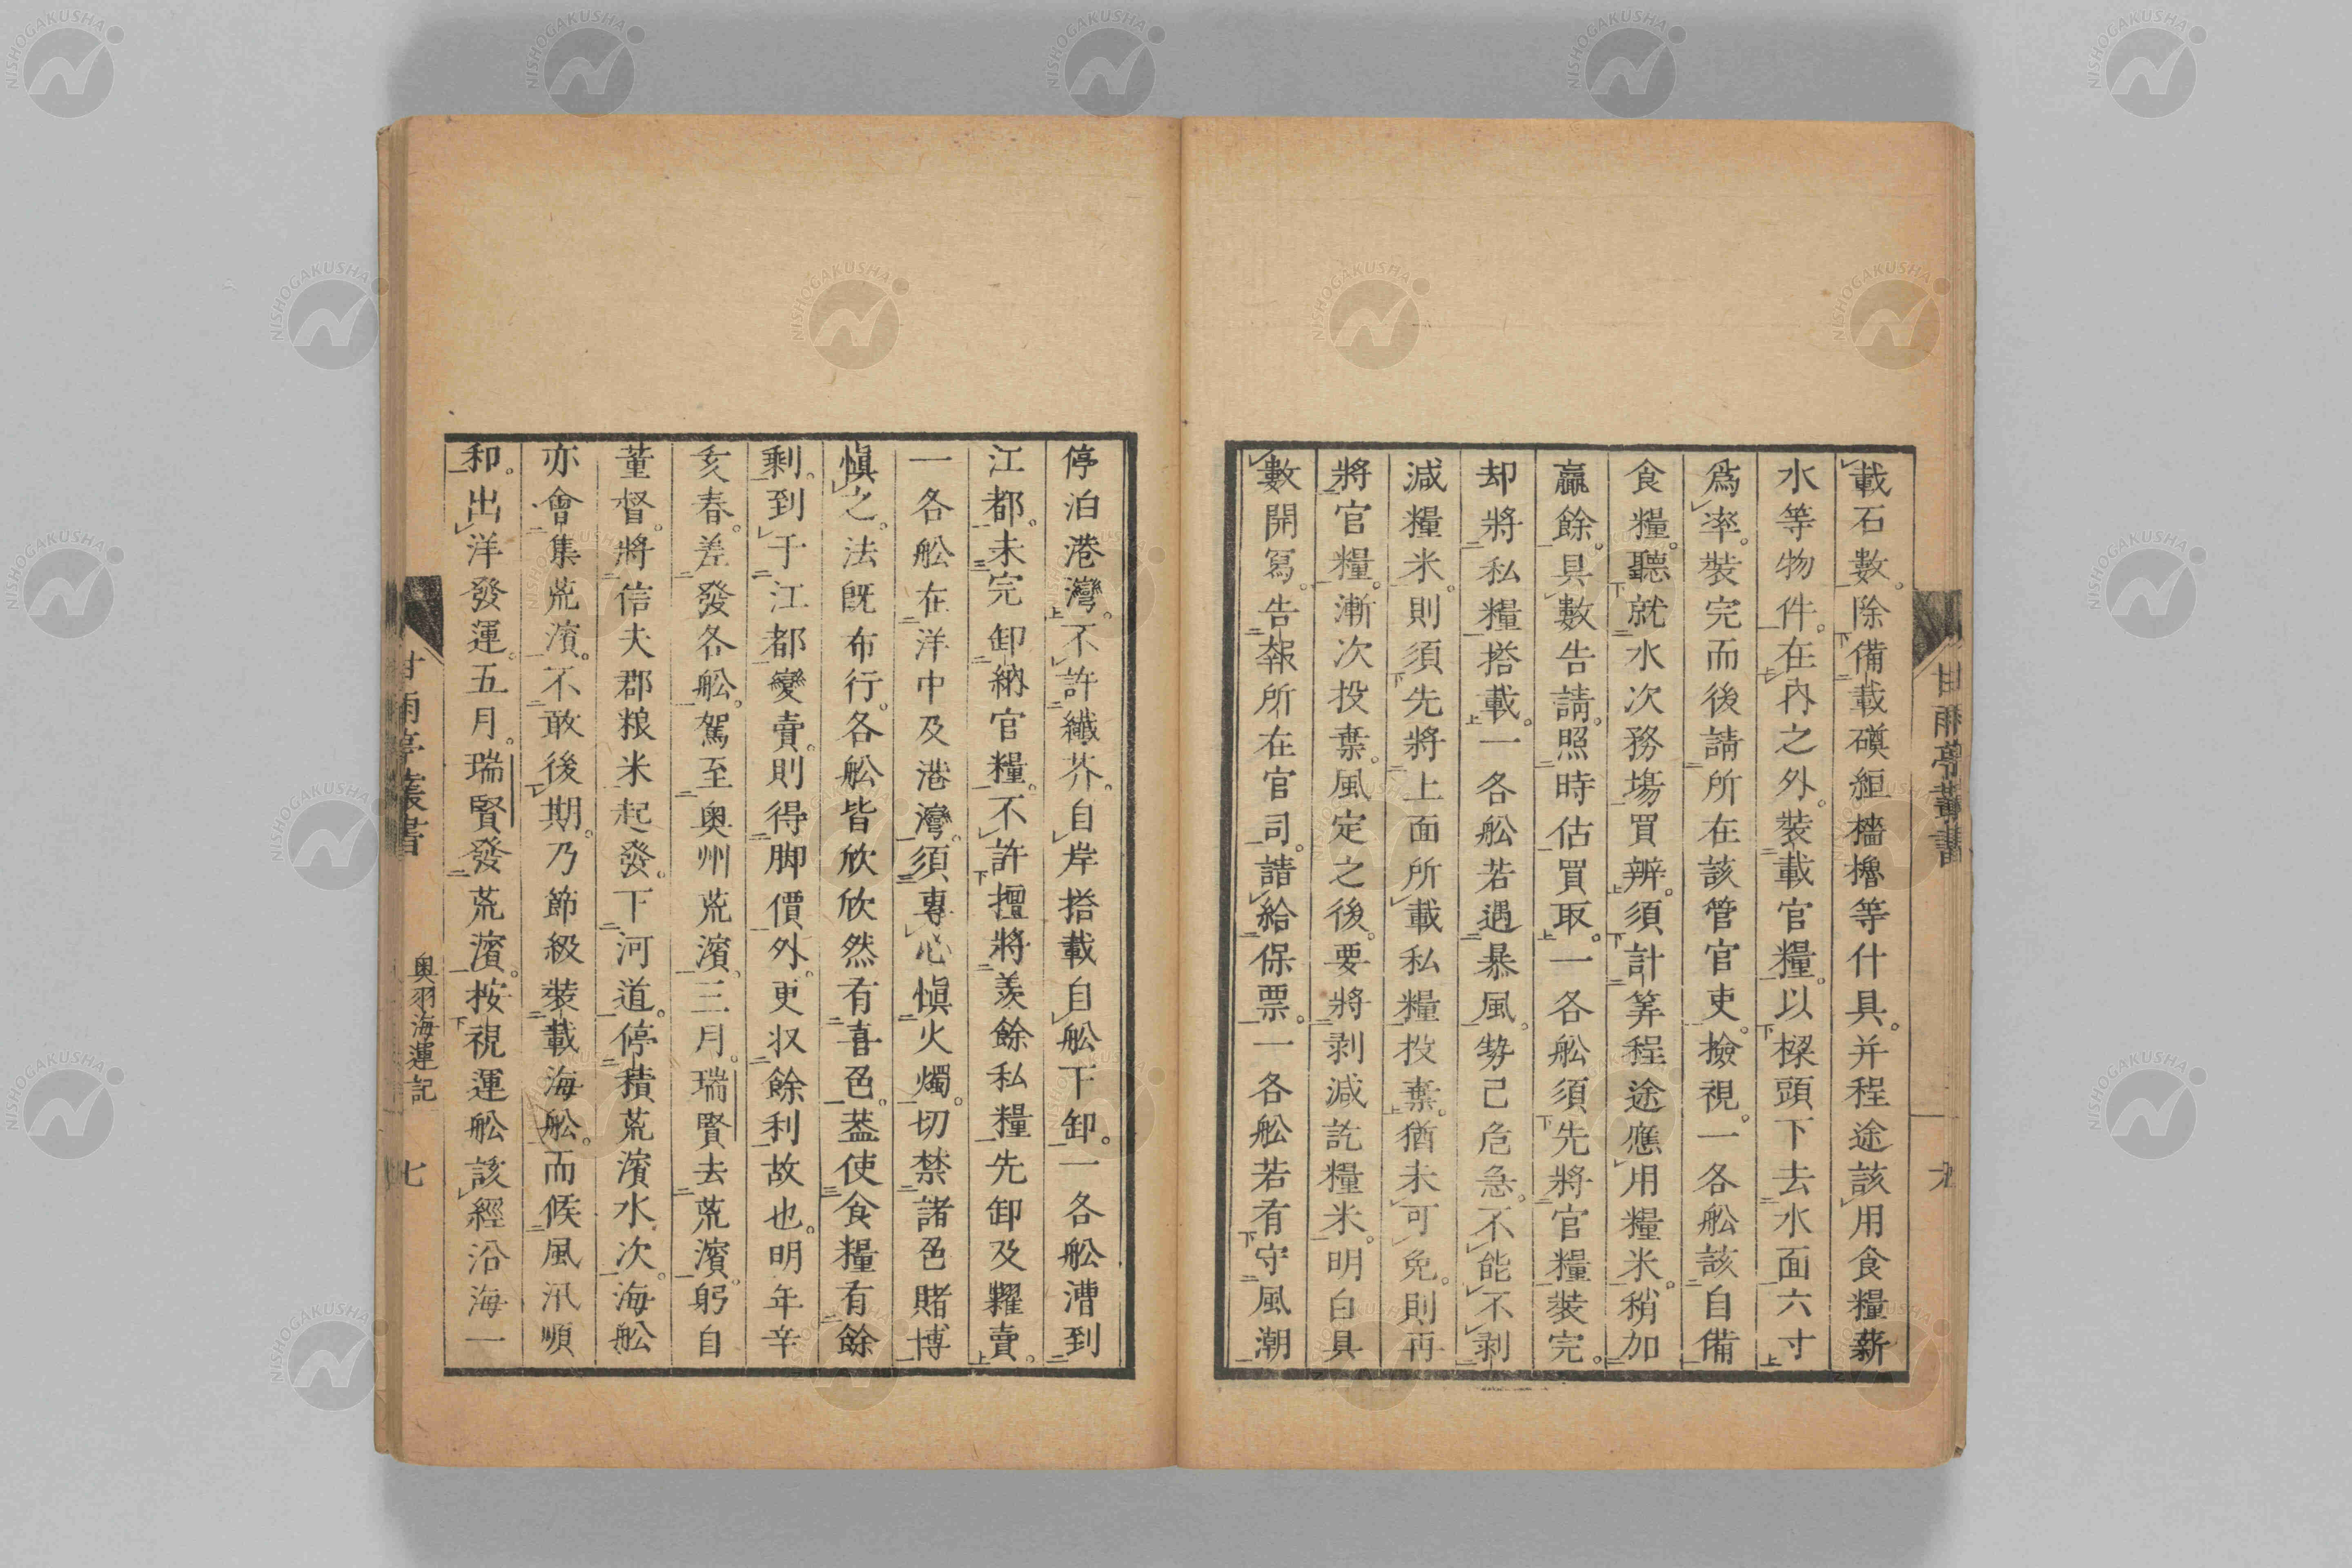 載石數。除備載碩絙檣櫓等什具。并程途該用食糧薪
水等物件。在內之外。裝載官糧。以樑頭下去水面六寸
爲率。裝完而後請所在該管官吏撿視。一各舩該自備
食糧。聽就水次務場買辨。須計筭程途應用糧米。稍加
贏餘。具數告請。照時估買取。一各舩須先將官糧裝完。
却將私糧搭載。一各舩若遇暴風。勢已危急。不能不剥
減糧米。則須先將上面所載私糧投棄。猶未可免。則再
將官糧。漸次投棄。風定之後。要將剥減訖糧米。明白具
數開寫。告報所在官司。請給保票。一各舩若有守風潮
停泊港灣。不許纖芥。自岸搭載自舩下卸。一各舩漕到
江都。未完卸納官糧。不許擅將羨餘私糧先卸及糶賣。
一各舩在洋中及港灣。須專心愼火燭。切禁諸色賭博
愼之。法旣布行。各舩皆欣欣然有喜色。葢使食糧有餘
剩。到于江都變賣。則得脚價外。更収餘利故也。明年辛
亥春。差發各舩。駕至奧州荒濱。三月。瑞賢去荒濱。躬自
董督。將信夫郡粮米起發。下河道。停積荒濱水次。海舩
亦會集荒濱。不敢後期。乃節級裝載海舩。而候風汛順
和。出洋發運。五月。瑞賢發荒濱。按視運舩該經沿海一
甘雨亭叢書
甘雨亭叢書
奧羽海運記
七
NISHOGAKUSHA